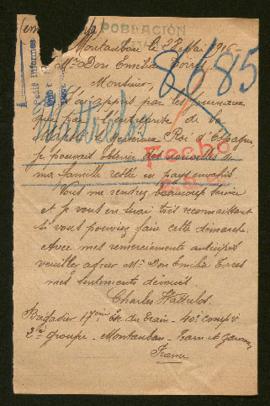 POBLACIÓN
Montauban le 22 Mai 1916
Mr Don Emilio
8685
Monsieur,
J'ai appris par les journaux
que par l'entremise de la
Majesté Roi d'Espagne
je pouvais obtenir des nouvelles de
ma famille restée en pays envahis
Fecho
Vous me rendrez beaucoup service
et je vous en serai très reconnaissant
si vous pouviez faire cette démarche.
Avec mes remerciements anticipés
veuillez agréer Mr Don Emilio Torres
mes sentiments dévoués
Charles Hattrelot
Brigadier 17ème Esc du Train - 40e Comp
2me groupe - Montauban - Tarn et Garonne
France